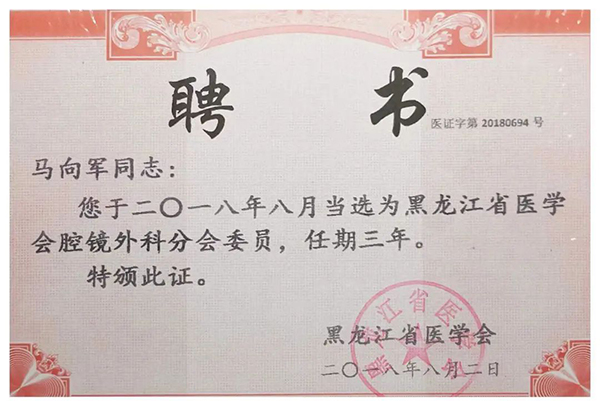 聘 书
医证字第 20180694 号
马向军同志：
您于二〇一八年八月当选为黑龙江省医学
会腔镜外科分会委员，任期三年。
特颁此证。
黑龙江省医学会
二〇一八年八月二日
黑龙江省医学会